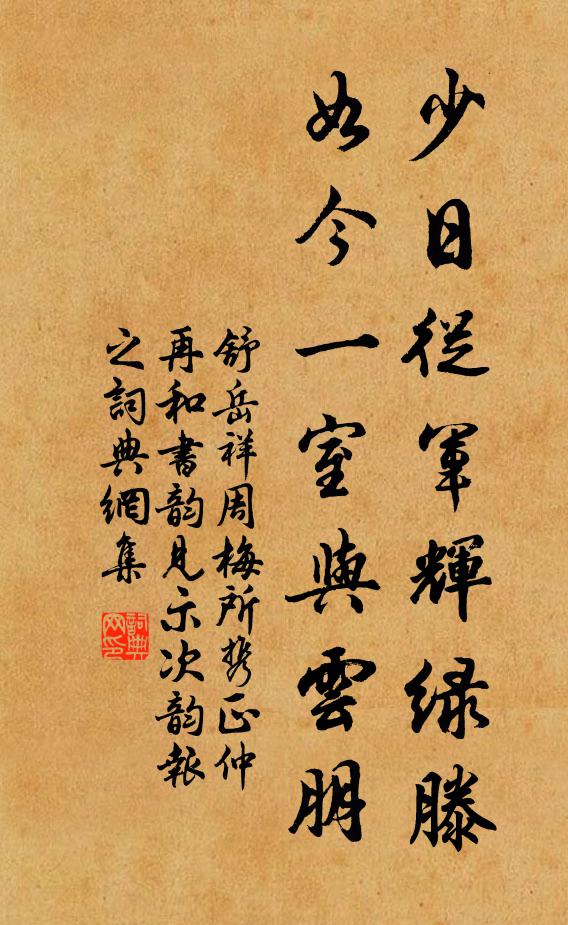 少日從軍輝綠滕
如今一室與雲朋
舒岳祥周梅所攜正仲
再和書韵見示次韵報
之詞典網集
詞典網印